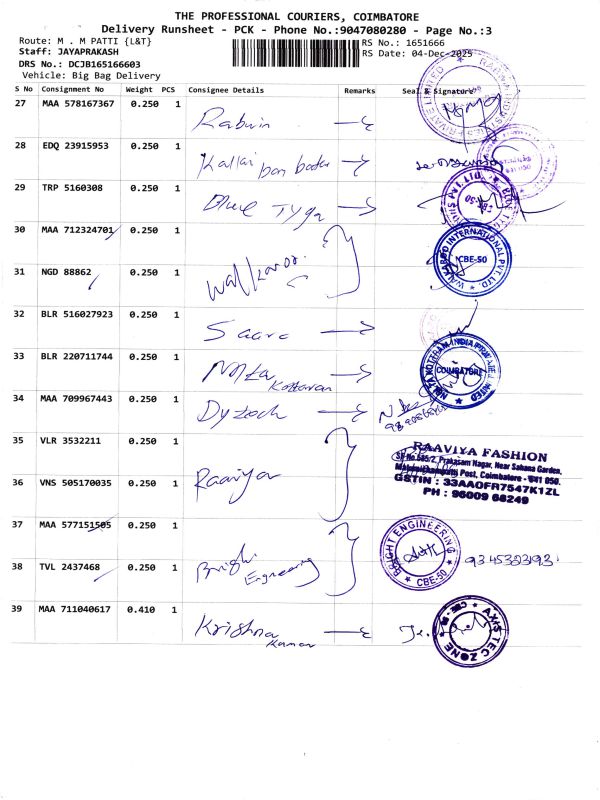 THE PROFESSIONAL COURIERS, COIMBATORE
Delivery Runsheet - PCK - Phone No.:9047080280 - Page No.:3
Route: M . M PATTI {L&T}
RS No.: 1651666
Staff: JAYAPRAKASH
RS Date: 04-Dec-2025
DRS No.: DCJB165166603
Vehicle: Big Bag Delivery
S No Consignment No Weight PCS Consignee Details Remarks Seal & Signature
27 MAA 578167367 0.250 1
28 EDQ 23915953 0.250 1
29 TRP 5160308 0.250 1 Blue Tyga
30 MAA 712324701 0.250 1
31 NGD 88862 0.250 1 Walkaroo
WALKAROO INTERNATIONAL PVT. LTD.
CBE-50
32 BLR 516027923 0.250 1 Saara
33 BLR 220711744 0.250 1 Kottaran
COIMBATORE
34 MAA 709967443 0.250 1
35 VLR 3532211 0.250 1
36 VNS 505170035 0.250 1
RAAVIYA FASHION
SF No.585/2, Prakasam Nagar, Near Sahana Garden,
Post, Coimbatore - 641 050.
GSTIN : 33AAOFR7547K1ZL
PH : 96009 68249
37 MAA 577151505 0.250 1
38 TVL 2437468 0.250 1 Bright Engineering
BRIGHT ENGINEERING
CBE-50
39 MAA 711040617 0.410 1 Krishna Kumar
AXIS TEC ZONE